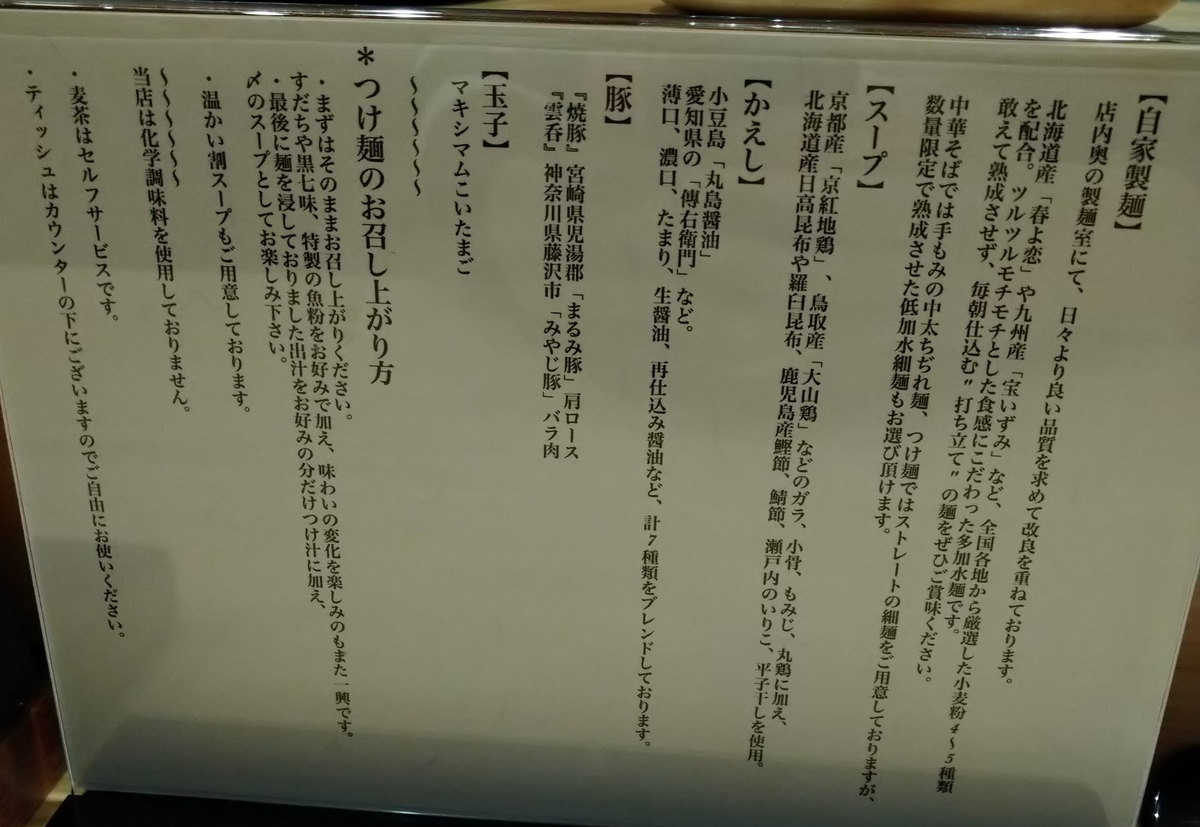 【自家製麺】
店内奥の製麺室にて、日々より良い品質を求めて改良を重ねております。
北海道産「春よ恋」や九州産「宝いずみ」など、全国各地から厳選した小麦粉4〜5種類
を配合。ツルツルモチモチとした食感にこだわった多加水麺です。
敢えて熟成させず、毎朝仕込む〃打ち立て〃の麺をぜひご賞味ください。
中華そばでは手もみの中太ちぢれ麺、つけ麺ではストレートの細麺をご用意しておりますが、
数量限定で熟成させた低加水細麺もお選び頂けます。
【スープ】
京都産「京紅地鶏」、鳥取産「大山鶏」などのガラ、小骨、もみじ、丸鶏に加え、
北海道産日高昆布や羅臼昆布、鹿児島産鰹節、鯖節、瀬戸内のいりこ、平子干しを使用。
【かえし】
小豆島「丸島醤油」
愛知県の「傳右衛門」など。
薄口、濃口、たまり、生醤油、再仕込み醤油など、計7種類をブレンドしております。
【豚】
『焼豚』宮崎県児湯郡「まるみ豚」肩ロース
『雲呑』神奈川県藤沢市「みやじ豚」バラ肉
【玉子】
マキシマムこいたまご
〜〜〜〜〜〜
＊つけ麺のお召し上がり方
・まずはそのままお召し上がりください。
すだちや黒七味、特製の魚粉をお好みで加え、味わいの変化を楽しみのもまた一興です。
・最後に麺を浸しておりました出汁をお好みの分だけつけ汁に加え、
〆のスープとしてお楽しみ下さい。
・温かい割スープもご用意しております。
〜〜〜〜〜〜
当店は化学調味料を使用しておりません。
・麦茶はセルフサービスです。
・ティッシュはカウンターの下にございますのでご自由にお使いください。